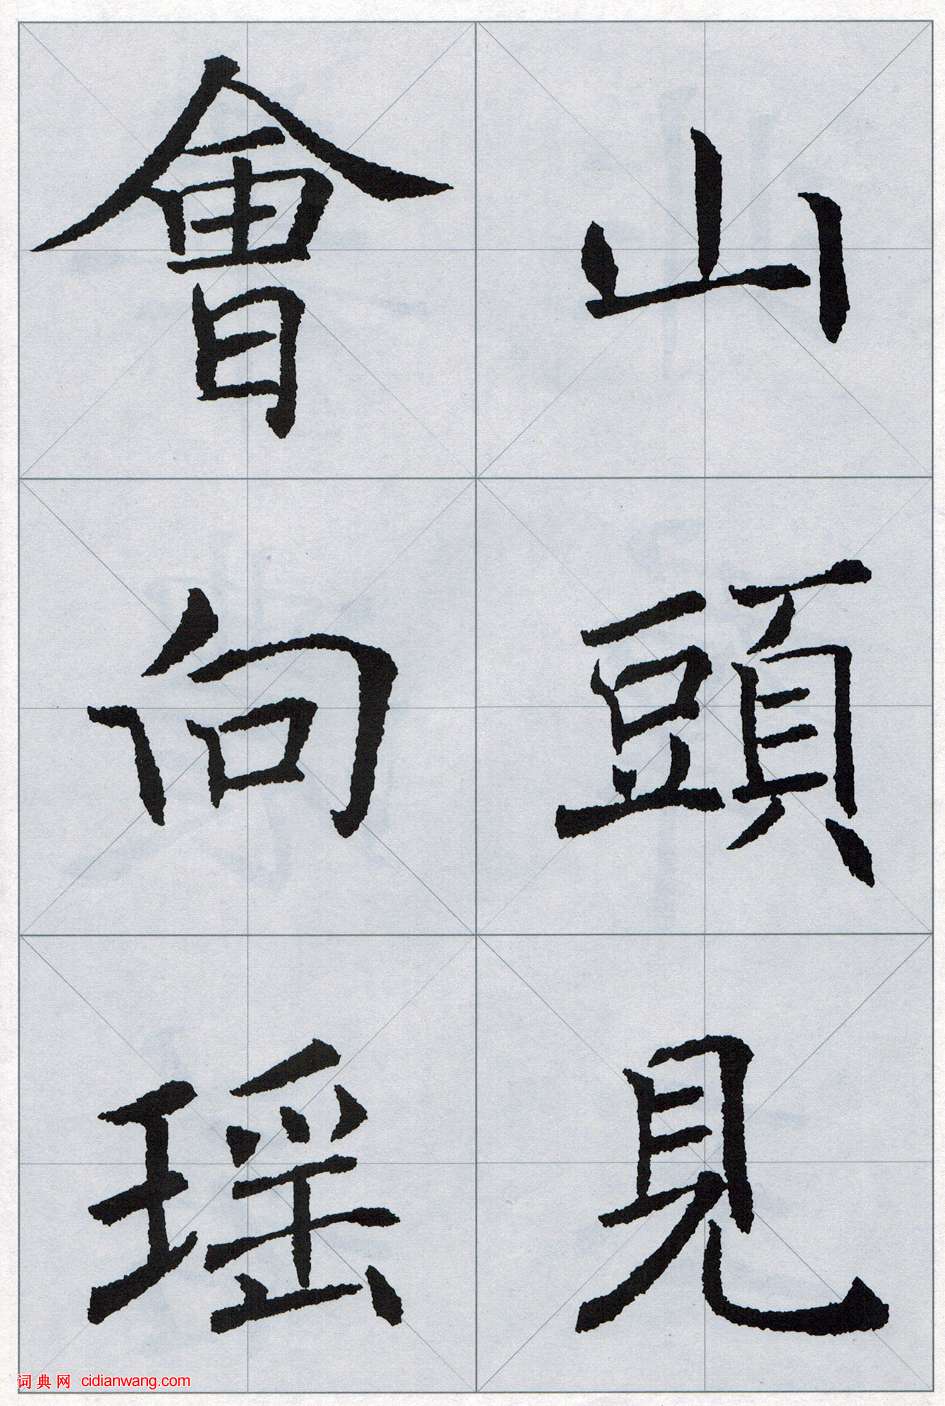 山頭見
會向瑶
词典网 cidianwang.com